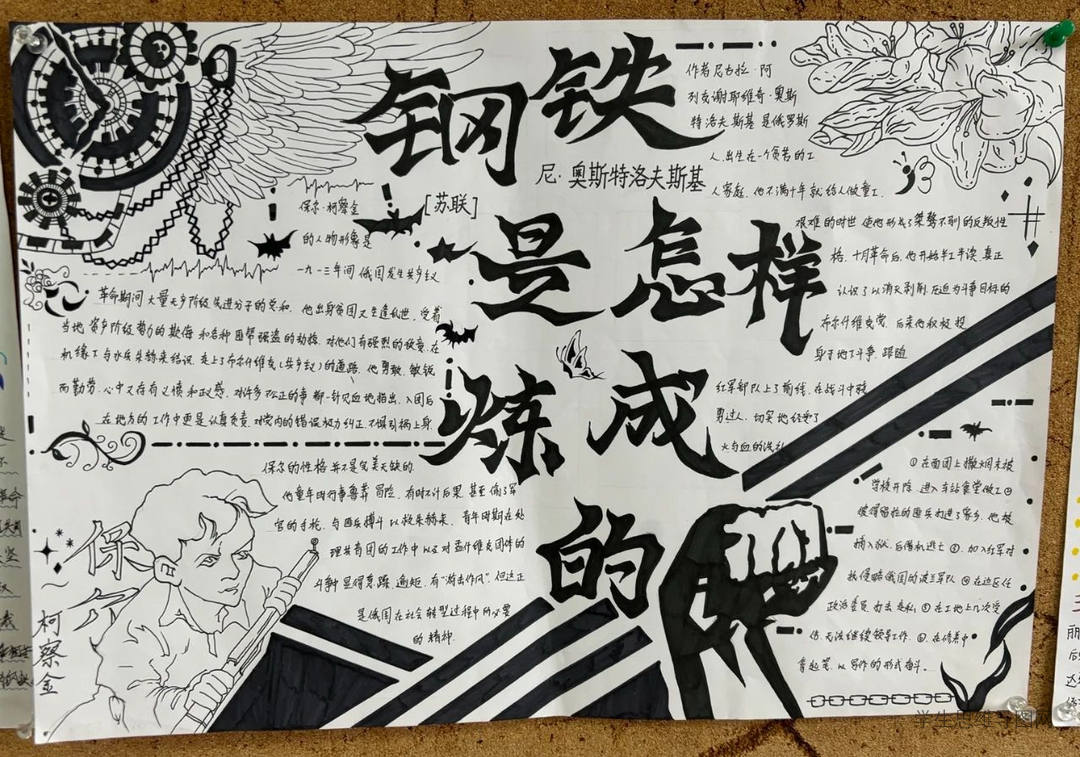 钢铁
是怎样
炼成
的
[苏联]
尼·奥斯特洛夫斯基
作者尼古拉·阿
列克谢耶维奇·奥斯
特洛夫斯基是俄罗斯
人,出生在一个贫苦的工
人家庭,他不满十年就给人做童工,
艰难的时世使他形成了桀骜不驯的反叛性
格,十月革命后,他开始半工半读,真正
认识了以消灭剥削压迫为斗争目标的
布尔什维克党,后来他积极投
身于地下斗争,跟随
红军部队上了前线,在战斗中骁
勇过人,切实地经受了
火与血的洗礼
保尔·柯察金
的人物形象是
一九一三年间俄国发生共产主义
革命期间大量无产阶级先进分子的共和,他出身贫困又生逢乱世,受着
当地资产阶级势力的欺侮和各种困帮强盗的劫掠,对他们有强烈的
机缘下与水兵朱赫来结识,走上了布尔什维克(共产主义)的道路,他勇敢,敏锐
而勤劳,心中又存有义愤和敌惑,对许多不公正的事都一针见血地指出,入团后
在地方的工作中更是认真负责,对党内的错误极力纠正,不惧引祸上身
保尔的性格并不是完美无缺的,
他童年时行事鲁莽冒险,有时不计后果,甚至偷了军
官的手枪,与匪兵搏斗以救朱赫来,青年时期在处
理共青团的工作中以及对孟什维克团体的
斗争中显得意躁,通短,有“游击作风”,但这正
是俄国在社会转型过程中所必要
的精神.
保
尔
柯
察
金
①在面团上撒烟末被
学校开除,进入车站食堂做工②
彼得留拉的匪兵打进了家乡,他被
捕入狱,后侥幸逃亡③.加入红军对
抗侵略俄国的波兰军队④在边区任
政治委员,
⑤在工地上几次受
伤,无法继续领导工作.⑥.在修养中
拿起笔,以写作的形式奋斗。